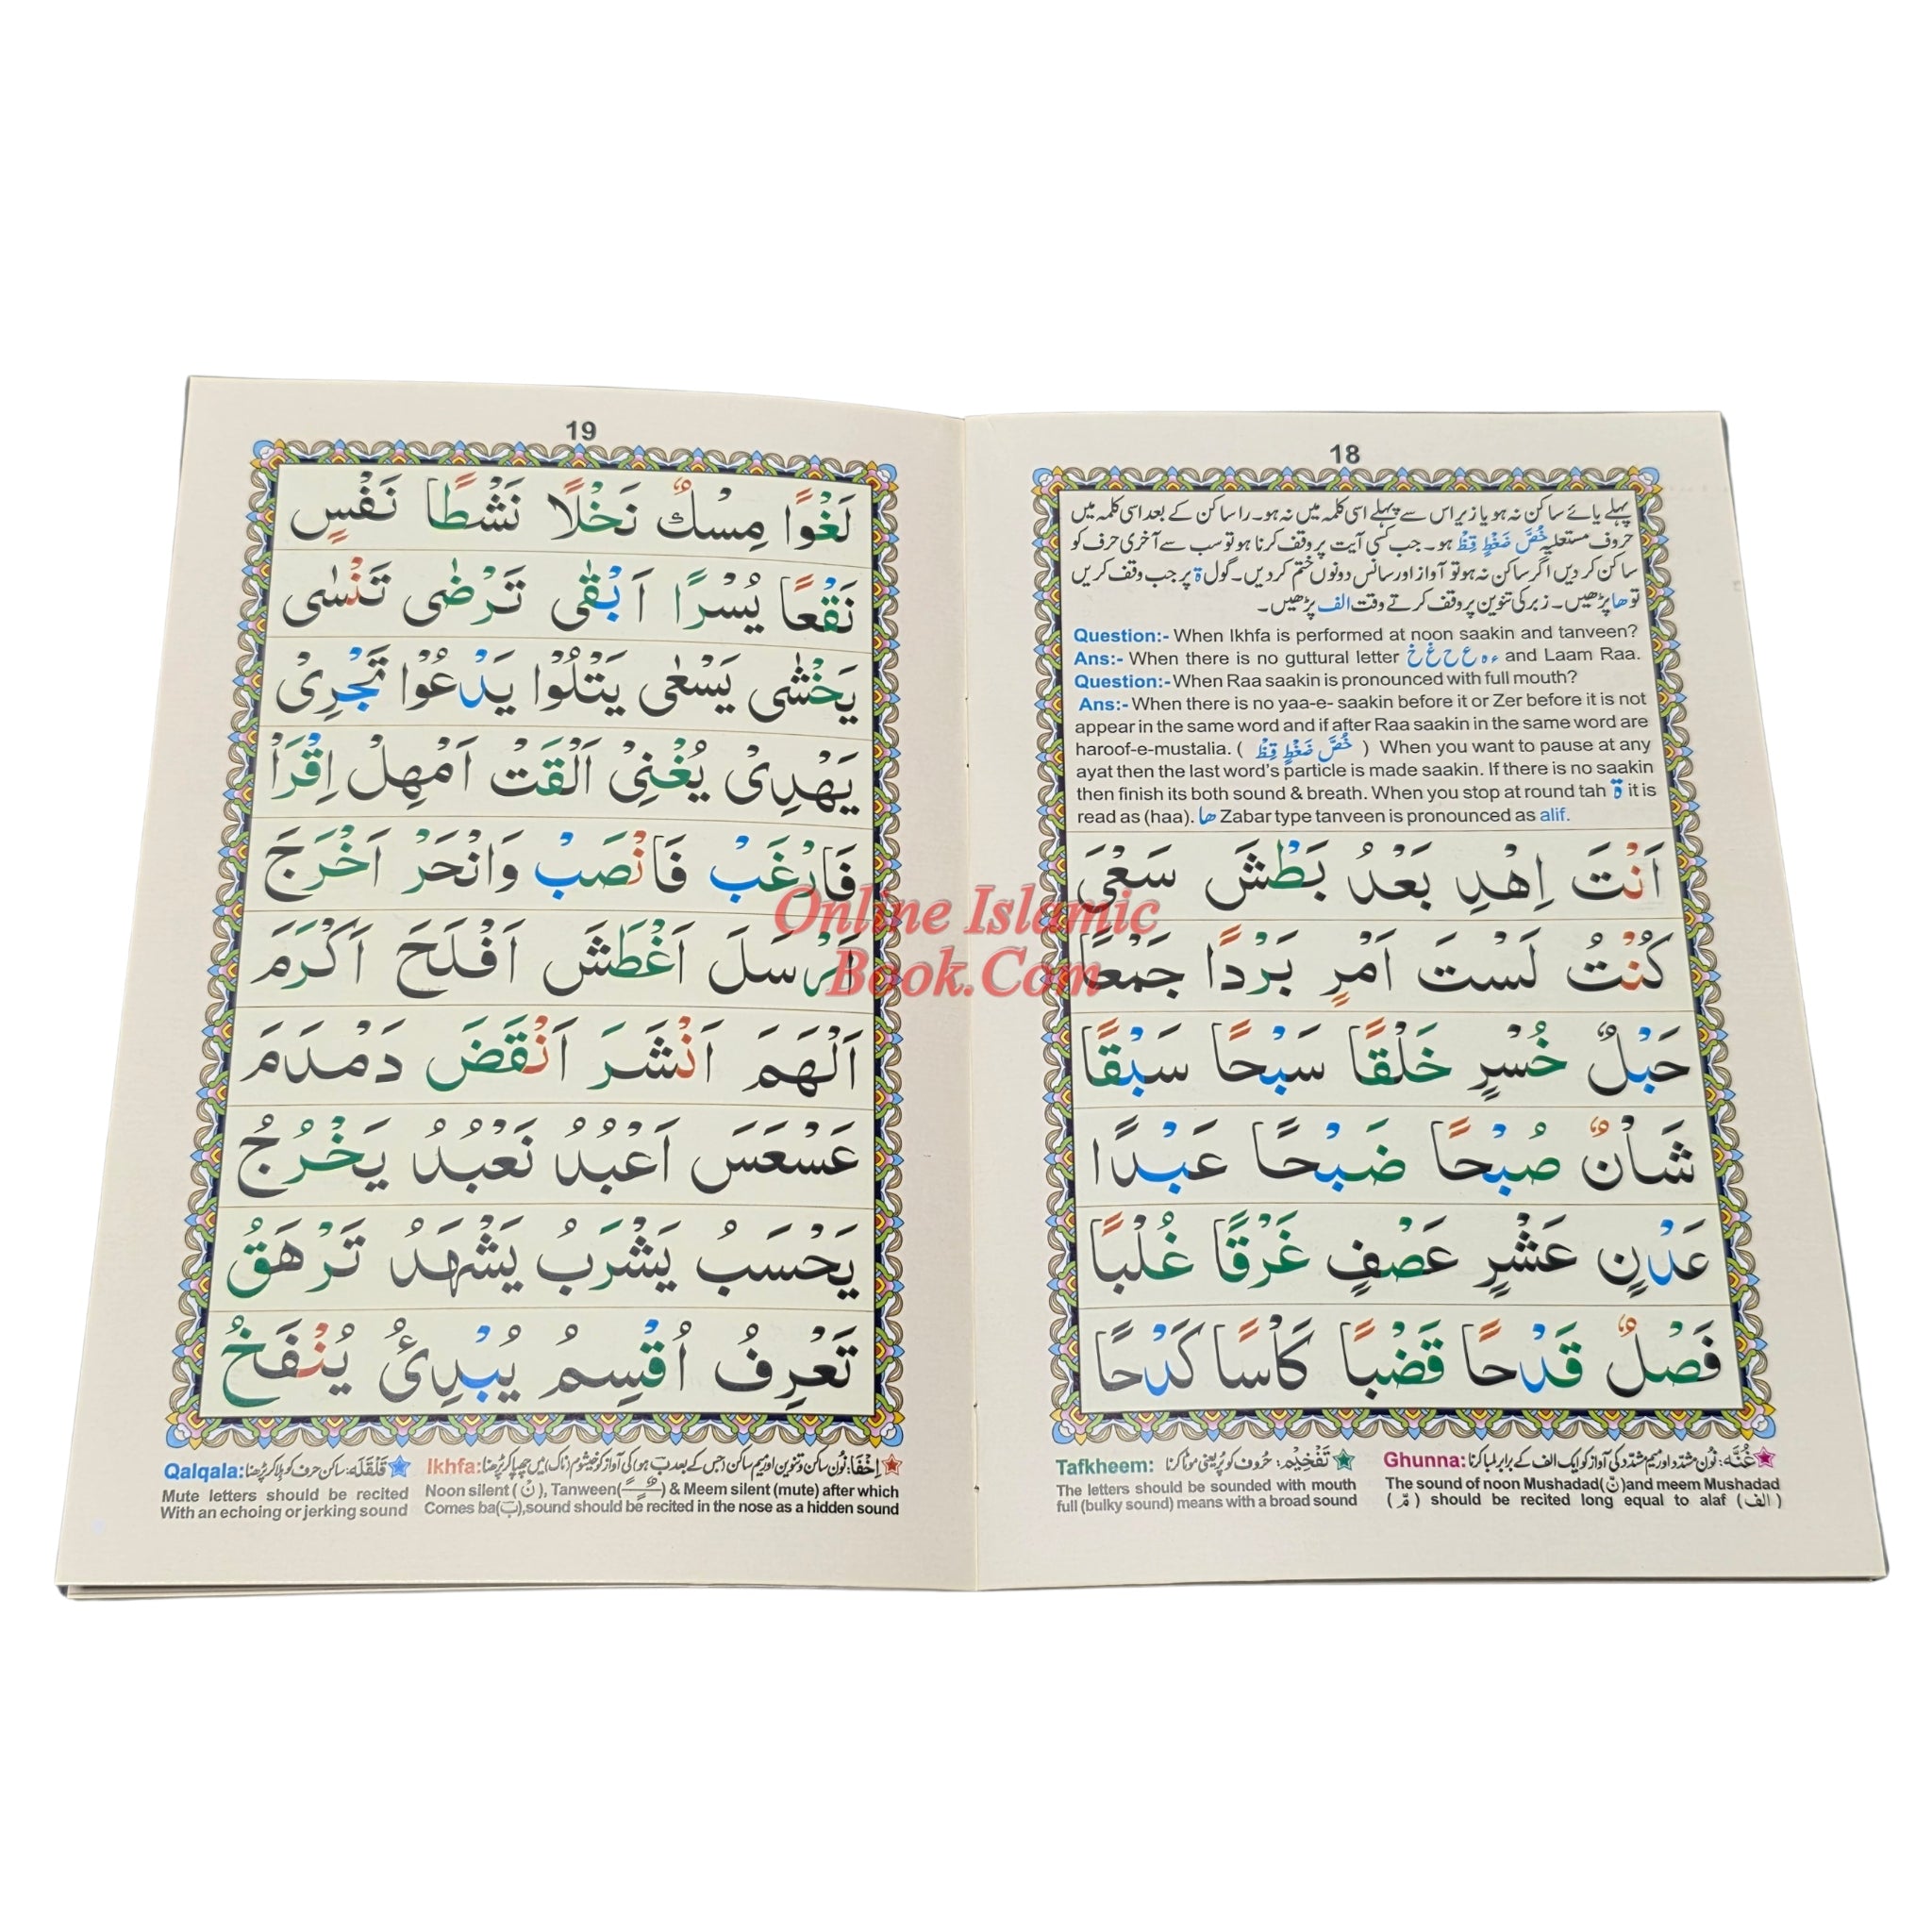 18
پہلے یائے ساکن نہ ہو یا زیر اس سے پہلے اسی کلمہ میں نہ ہو۔ را ساکن کے بعد اسی کلمہ میں
حروف مستعلیہ خُصَّ ضَغْطٍ قِظْ ہو۔ جب کسی آیت پر وقف کرنا ہو تو سب سے آخری حرف کو
ساکن کر دیں اگر ساکن نہ ہو تو آواز اور سانس دونوں ختم کر دیں۔ گول ۃ پر جب وقف کریں
تو ھا پڑھیں۔ زبر کی تنوین پر وقف کرتے وقت الف پڑھیں۔
Question:- When Ikhfa is performed at noon saakin and tanveen?
Ans:- When there is no guttural letter ء ہ ع ح غ خ and Laam Raa.
Question:- When Raa saakin is pronounced with full mouth?
Ans:- When there is no yaa-e- saakin before it or Zer before it is not
appear in the same word and if after Raa saakin in the same word are
haroof-e-mustalia. ( خُصَّ ضَغْطٍ قِظْ ) When you want to pause at any
ayat then the last word's particle is made saakin. If there is no saakin
then finish its both sound & breath. When you stop at round tah ۃ it is
read as (haa). ھا Zabar type tanveen is pronounced as alif.
اَنْتَ اِهْدِ بَعْدُ بَطْشَ سَعْىَ
كُنْتُ لَسْتَ اَمْرٍ بَرْدًا جَمْعًا
حَبْلٌ خُسْرٍ خَلْقًا سَبْحًا سَبْقًا
شَاْنٌ صُبْحًا ضَبْحًا عَبْدًا
عَدْنٍ عَشْرٍ عَصْفٍ غَرْقًا غُلْبًا
فَصْلٌ قَدْحًا قَضْبًا كَاْسًا كَدْحًا
Ghunna: غُنَّہ: نُون مشدّد اور میم مشدّد کی آواز کو ایک الف کے برابر لمبا کرنا
The sound of noon Mushadad(نّ)and meem Mushadad
(مّ) should be recited long equal to alaf (الف)
Tafkheem: تَفْخِیْم: حُروف کو پُر یعنی موٹا کرنا
The letters should be sounded with mouth
full (bulky sound) means with a broad sound
19
لَغْوًا مِسْكٌ نَخْلًا نَشْطًا نَفْسٍ
نَقْعًا يُسْرًا اَبْقٰى تَرْضٰى تَنْسٰى
يَخْشٰى يَسْعٰى يَتْلُوْا يَدْعُوْا تَجْرِىْ
يَهْدِىْ يُغْنِىْ اَلْقَتْ اَمْهِلْ اِقْرَاْ
فَارْغَبْ فَانْصَبْ وَانْحَرْ اَخْرَجَ
اَرْسَلَ اَغْطَشَ اَفْلَحَ اَكْرَمَ
اَلْهَمَ اَنْشَرَ اَنْقَضَ دَمْدَمَ
عَسْعَسَ اَعْبُدُ نَعْبُدُ يَخْرُجُ
يَحْسَبُ يَشْرَبُ يَشْهَدُ تَرْهَقُ
تَعْرِفُ اُقْسِمُ يُبْدِئُ يُنْفَخُ
Ikhfa: اِخفَا: نُون ساکن و تنوین اور میم ساکن (جس کے بعد ب ہو) کی آواز کو خیشوم (ناک) میں چھپا کر پڑھنا
Noon silent (نْ), Tanween(ـًـٍـٌ) & Meem silent (mute) after which
Comes ba(ب),sound should be recited in the nose as a hidden sound
Qalqala: قَلقَلَہ: ساکن حرف کو ہلا کر پڑھنا
Mute letters should be recited
With an echoing or jerking sound
Online Islamic
Book.Com